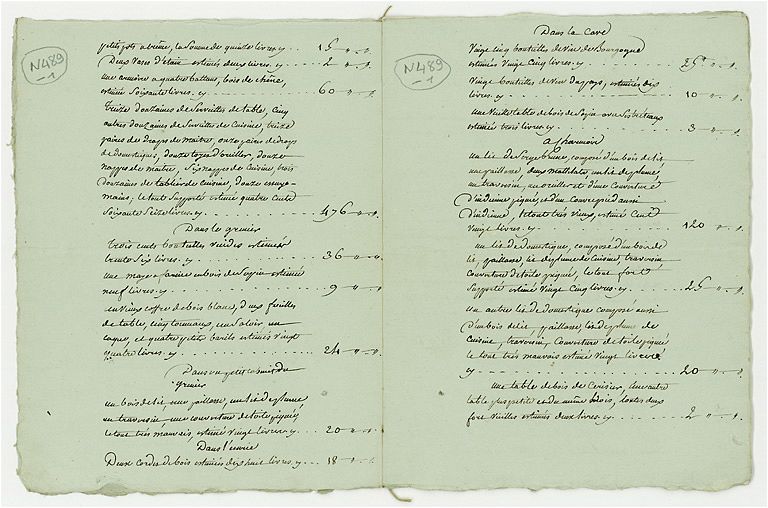 N489
-1
petits pots a crême, la Somme de quinze livres. cy . . . 15 " "
Deux Vases d'étain estimés deux livres. cy . . . 2 " "
une armoire a quatre battans, bois de chêne,
estimée Soixante livres. cy . . . 60 " "
treize douzaines de Serviettes de table, cinq
autres douzaines de Serviettes de Cuisine, treize
paires de draps de maitre, onze paires de draps
de domestiques, douze tayes d'oreiller, douze
nappes de maitre, Six nappes de Cuisine, trois
Douzaines de tabliers de Cuisine, douze essuye-
mains, le tout Supporté estimé quatre Cents
Soixante Seize livres. cy . . . 476 " "
Dans le grenier
trois cents bouteilles vuides estimées
trente Six livres. cy . . . 36 " "
une en bois de Sapin estimée
neuf livres. cy . . . 9 " "
un vieux coffre de bois blanc, deux feuilles
de table, cinq tonneaux, un Saloir, un
et quatre petits barils estimés vingt
quatre livres. cy . . . 24 " "
Dans un petit cabinet du
grenier
un bois de lit, une paillasse, un lit de plume
un traversin, une couverture de toile piquée,
le tout très mauvais, estimé vingt livres. cy . . . 20 " "
Dans l'écurie
Deux cordes de bois estimées dix huit livres. cy . . . 18 " "
N489
-1
Dans la Cave
Vingt cinq bouteilles de Vin de Bourgogne
estimées Vingt Cinq livres. cy . . . 25 " "
Vingt bouteilles de Vin du pays, estimées dix
livres. cy . . . 10 " "
une Vieille table de bois de Sapin avec Ses tréteaux
estimée trois livres. cy . . . 3 " "
un lit de Serge brune, composé d'un bois de lit
une paillasse, deux Mathelats, un lit de plume
un traversin, un oreiller et d'une Couverture
D'indienne piquée, et d'un Couvrepied aussi
d'indienne, le tout très Vieux, estimé Cent
Vingt livres. cy . . . 120 " "
un lit de domestique, composé d'un bois de
lit, paillasse, lit de plume de Cuisine, traversin
Couverture de toile piquée, le tout fort
Supporté estimé Vingt Cinq livres. cy . . . 25 " "
un autre lit de domestique composé aussi
D'un bois de lit, paillasse, lit de plume de
Cuisine, traversin, Couverture de toile piquée
le tout très mauvais estimé Vingt livres
cy . . . 20 " "
une table de bois de Cerisier, une autre
table plus petite et de même bois, toutes deux
fort Vieilles estimées deux livres. cy . . . 2 " "